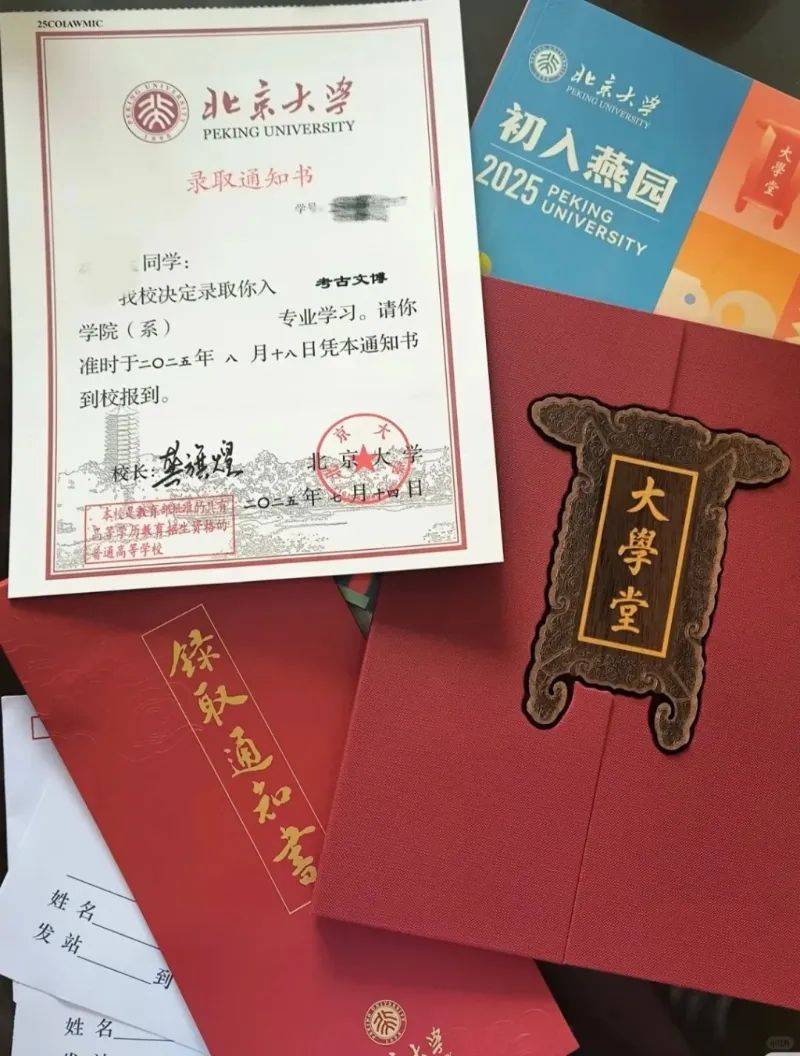 25COIAWMIC
PEKING UNIVERSITY
1898
北京大学
PEKING UNIVERSITY
录取通知书
学号
同学:
我校决定录取你入 考古文博
学院（系） 专业学习。请你
准时于二〇二五年 八 月十八日凭本通知书
到校报到。
校长:龚旗煌
北京大学
二〇二五年七月十四日
本校是教育部批准的具有
高等学历教育招生资格的
普通高等学校
北京大学
PEKING UNIVERSITY
初入燕园
2025 PEKING
UNIVERSITY
大學堂
大學堂
録取通知書
姓名
发站 到
姓名
发站
北京大学
小红书